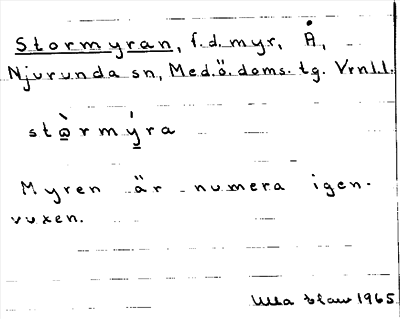 Stormyran, f.d. myr, Å,
Njurunda sn, Med.ö. doms. tg. Vrnll.
stὼ̲rmý̲ra
Myren är numera igen-
vuxen.
Ulla 1965